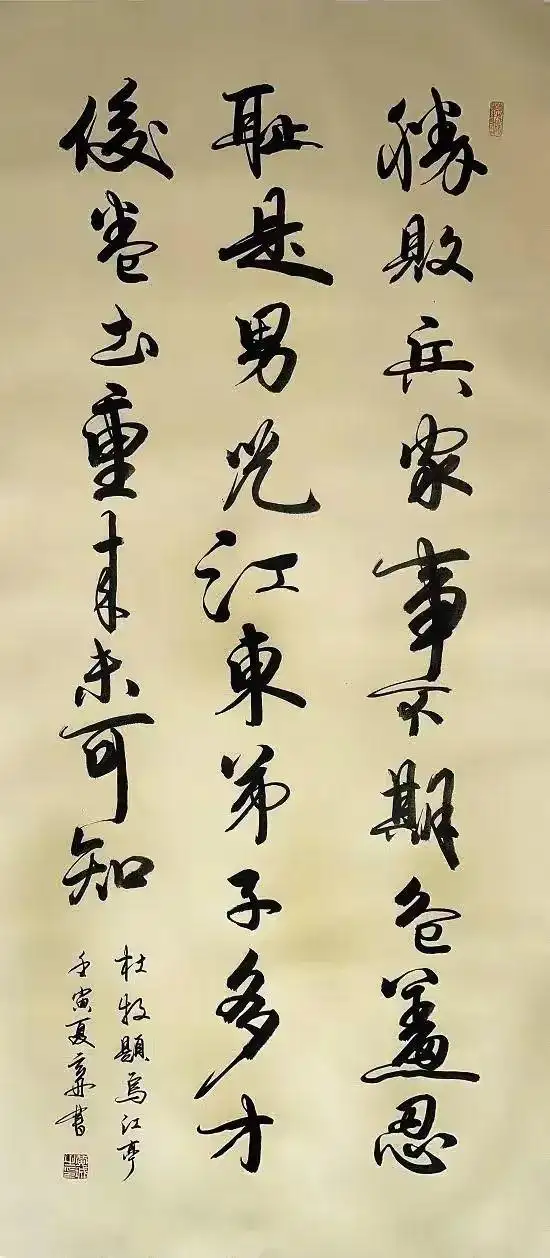 勝敗兵家事不期包羞忍
耻是男児江東弟子多才
俊卷土重来未可知
杜牧題烏江亭
壬寅夏書